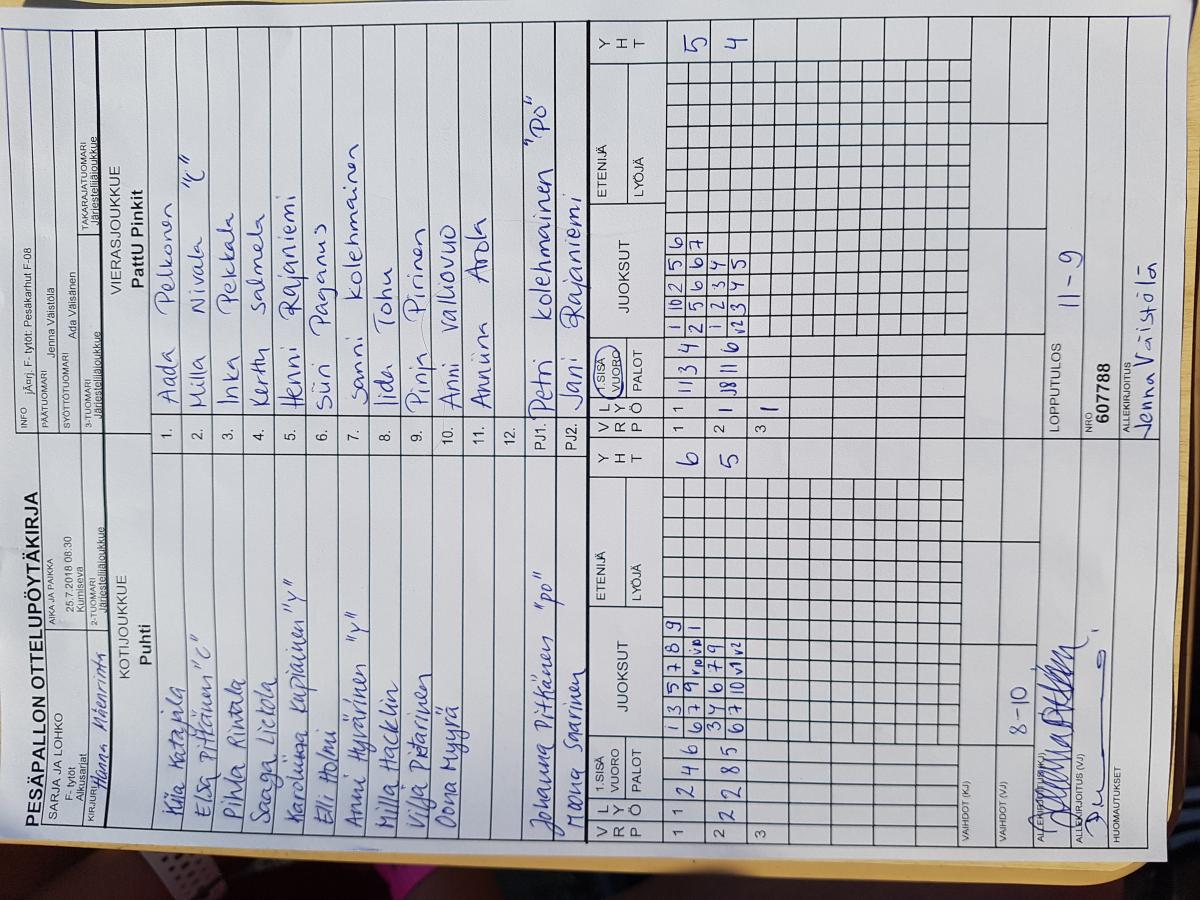 PESÄPALLON OTTELUPÖYTÄKIRJA
INFO jÄ¤rj. F- tytöt: Pesäkarhut F-08
SARJA JA LOHKO
F- tytöt
Alkusarjat
AIKA JA PAIKKA
25.7.2018 08:30
Kumiseva
PÄÄTUOMARI Jenna Väistölä
SYÖTTÖTUOMARI Ada Väisänen
KIRJURI Hanna
2-TUOMARI
Järjestelijäjoukkue
3-TUOMARI
Järjestelijäjoukkue
TAKARAJATUOMARI
Järjestelijäjoukkue
KOTIJOUKKUE
Puhti
VIERASJOUKKUE
Pattu Pinkit
Kiia Katajala 1. Aada Pelkonen
Elsa Pitkänen "C" 2. Milla Nivala "C"
Pihla Rintala 3. Inka Pekkala
Saaga Lickola 4. Kerttu Salmela
Karoliina Kapiainen "Y" 5. Henni Rajaniemi
Elli Holmi 6. Siiri Paganus
Anni Hyvärinen "Y" 7. Sanni Kolehmainen
Milla Hacklin 8. Iida Tohu
Vilja Pietarinen 9. Pinja Pirinen
Oona Myyrä 10. Anni Valliovuo
11. Anniina Arola
12.
Johanna Pitkänen "PO" PJ1. Petri Kolehmainen "PO"
Moona Saarinen PJ2. Jani Rajaniemi
V R P L Y Ö 1.SISÄ VUORO PALOT JUOKSUT ETENIJÄ LYÖJÄ Y H T V R P L Y Ö 1.SISÄ VUORO PALOT JUOKSUT ETENIJÄ LYÖJÄ Y H T
1 1 2 4 6 1 3 5 7 8 9 6 1 1 11 3 4 1 10 2 5 6 5
6 7 9 v10 v10 1 2 5 6 6 7
2 2 2 8 5 3 4 6 7 9 5 2 1 J8 11 6 1 2 3 4 4
6 7 10 v1 v2 v2 3 4 5
3 3 1
VAIHDOT (KJ)
VAIHDOT (VJ)
8-10
ALLEKIRJOITUS (KJ)
LOPPUTULOS 11-9
ALLEKIRJOITUS (VJ)
NRO
607788
HUOMAUTUKSET
ALLEKIRJOITUS
Jenna Väistölä